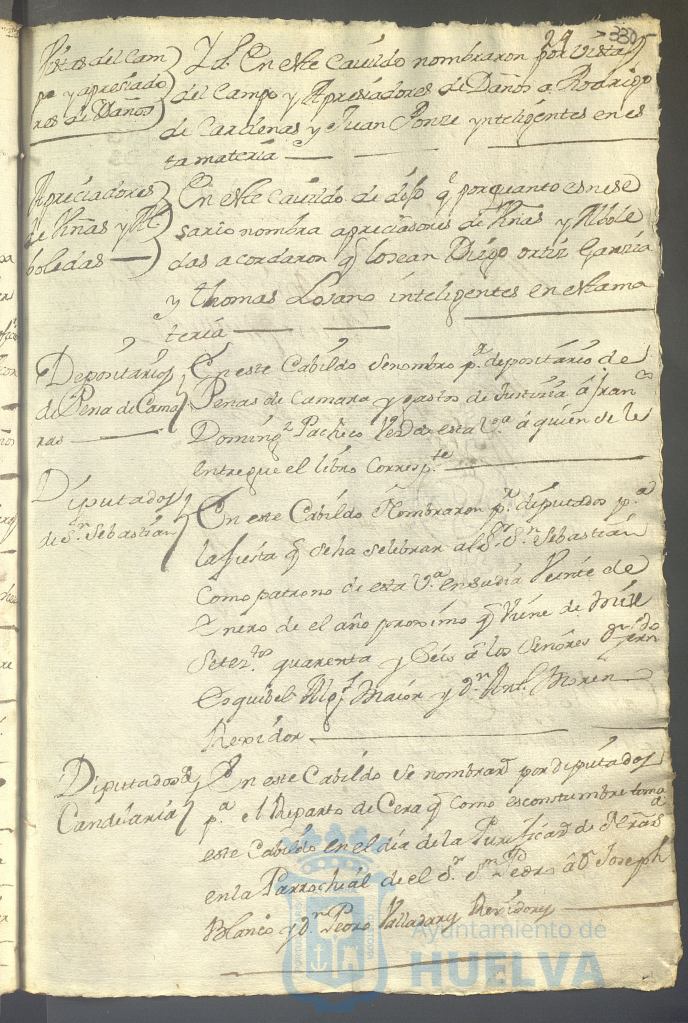 24 330
Vistas del Cam
po y apresiado
res de Daños
Yd. En este Cavildo nombraron por vistas
del Campo y Apresiadores de Daños a Rodrigo
de Cardenas y Juan Ponze ynteligentes en es
ta materia
Apreciadores
de Viñas y Ar
boledas
En este Cavildo se dijo q porquanto es nese
sario nombra apreciadores de Viñas y Arbole
das acordaron q lo sean Diego ortiz Garzia
y thomas Losano inteligentes en esta ma
teria
Depositarios
de Pena de Cama
ras
En este Cabildo se nombro pª depositario de
Penas de Camara y gastos de Justicia a Fran co
Doming z Pacheco Vº de esta Vª a quien se le
entregue el libro Corresp te
Diputados
de Sn Sebastian
En este Cabildo Nombraron pr diputados pª
la fiesta q se ha selebrar al Sr Sn Sebastian
como patrono de esta Vª en su dia Veinte de
Enero de el año proximo q Viene de mill
Setez tos quarenta y Seis a los Señores Dn Fern do
Esquibel Alg l Maior y Dn Ant Moren
Rexidor
Diputados de
Candelaria
En este Cabildo se nombrar por diputados
pª el Reparto de Cera q como es constumbre toma
este Cabildo en el dia de la Purifican de Nra Srª
en la Parrochial de el Sr Sn Pedro a Dn Joseph
Blanco y Dn Pedro Valladares Rexidores
Ayuntamiento de
HUELVA